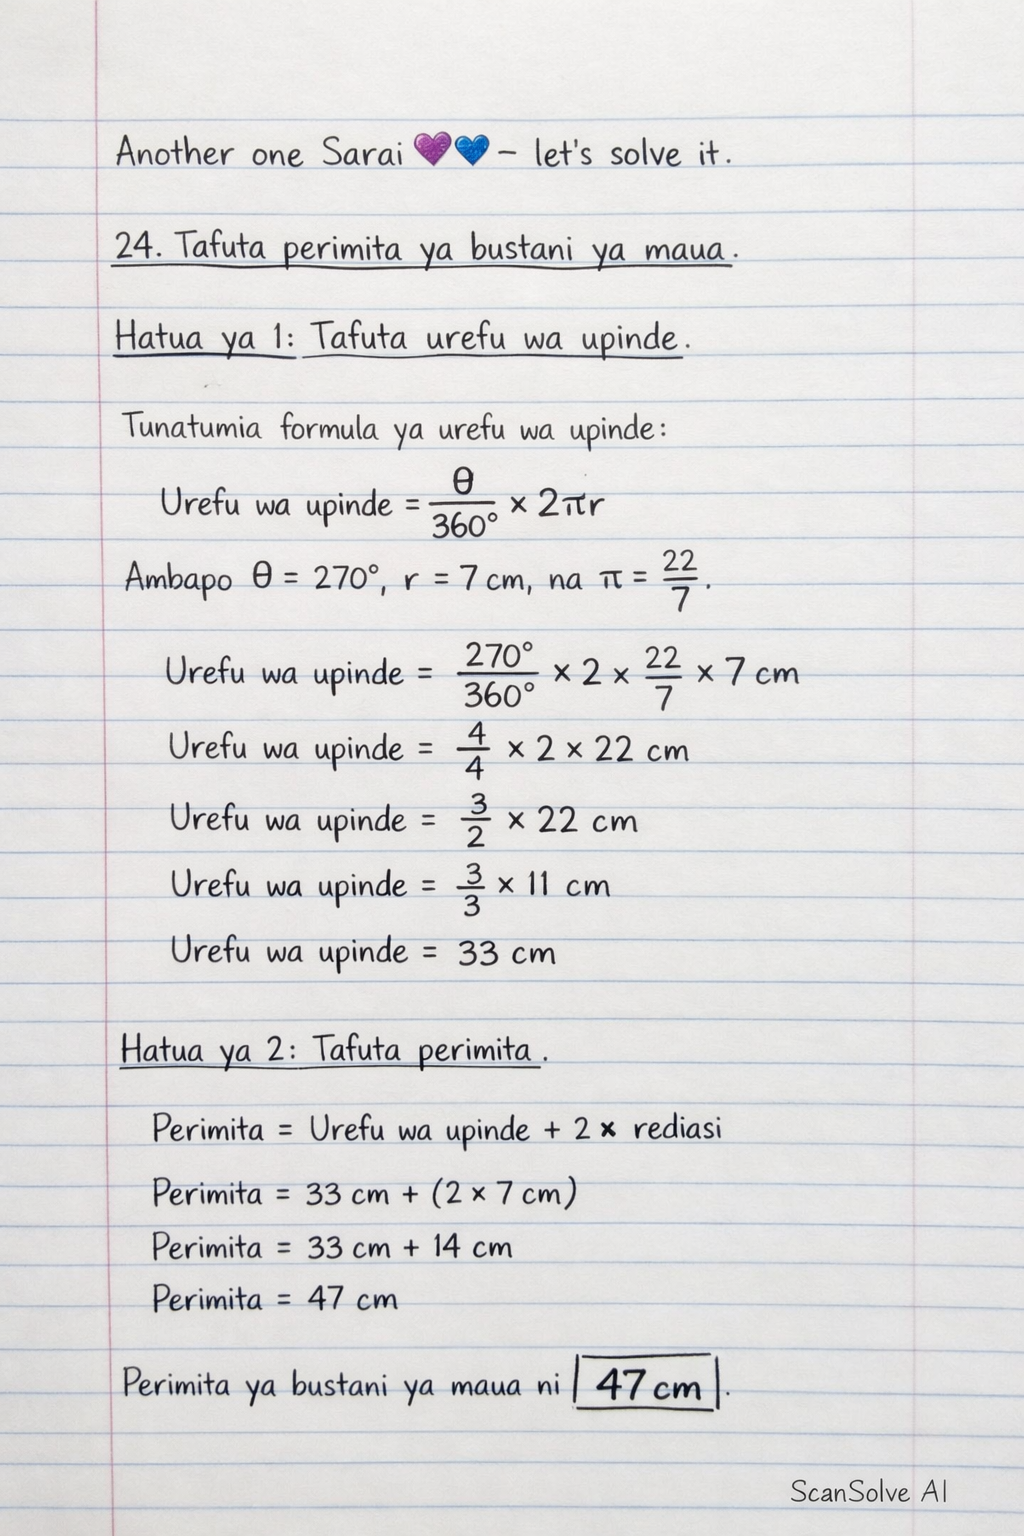 Another one Sarai 💜💙 – let's solve it.
24. Tafuta perimita ya bustani ya maua.
Hatua ya 1: Tafuta urefu wa upinde.
Tunatumia formula ya urefu wa upinde:
Urefu wa upinde = θ/360° × 2πr
Ambapo θ = 270°, r = 7 cm, na π = 22/7.
Urefu wa upinde = 270°/360° × 2 × 22/7 × 7 cm
Urefu wa upinde = 4/4 × 2 × 22 cm
Urefu wa upinde = 3/2 × 22 cm
Urefu wa upinde = 3/3 × 11 cm
Urefu wa upinde = 33 cm
Hatua ya 2: Tafuta perimita.
Perimita = Urefu wa upinde + 2 × rediasi
Perimita = 33 cm + (2 × 7 cm)
Perimita = 33 cm + 14 cm
Perimita = 47 cm
Perimita ya bustani ya maua ni 47 cm.
ScanSolve AI